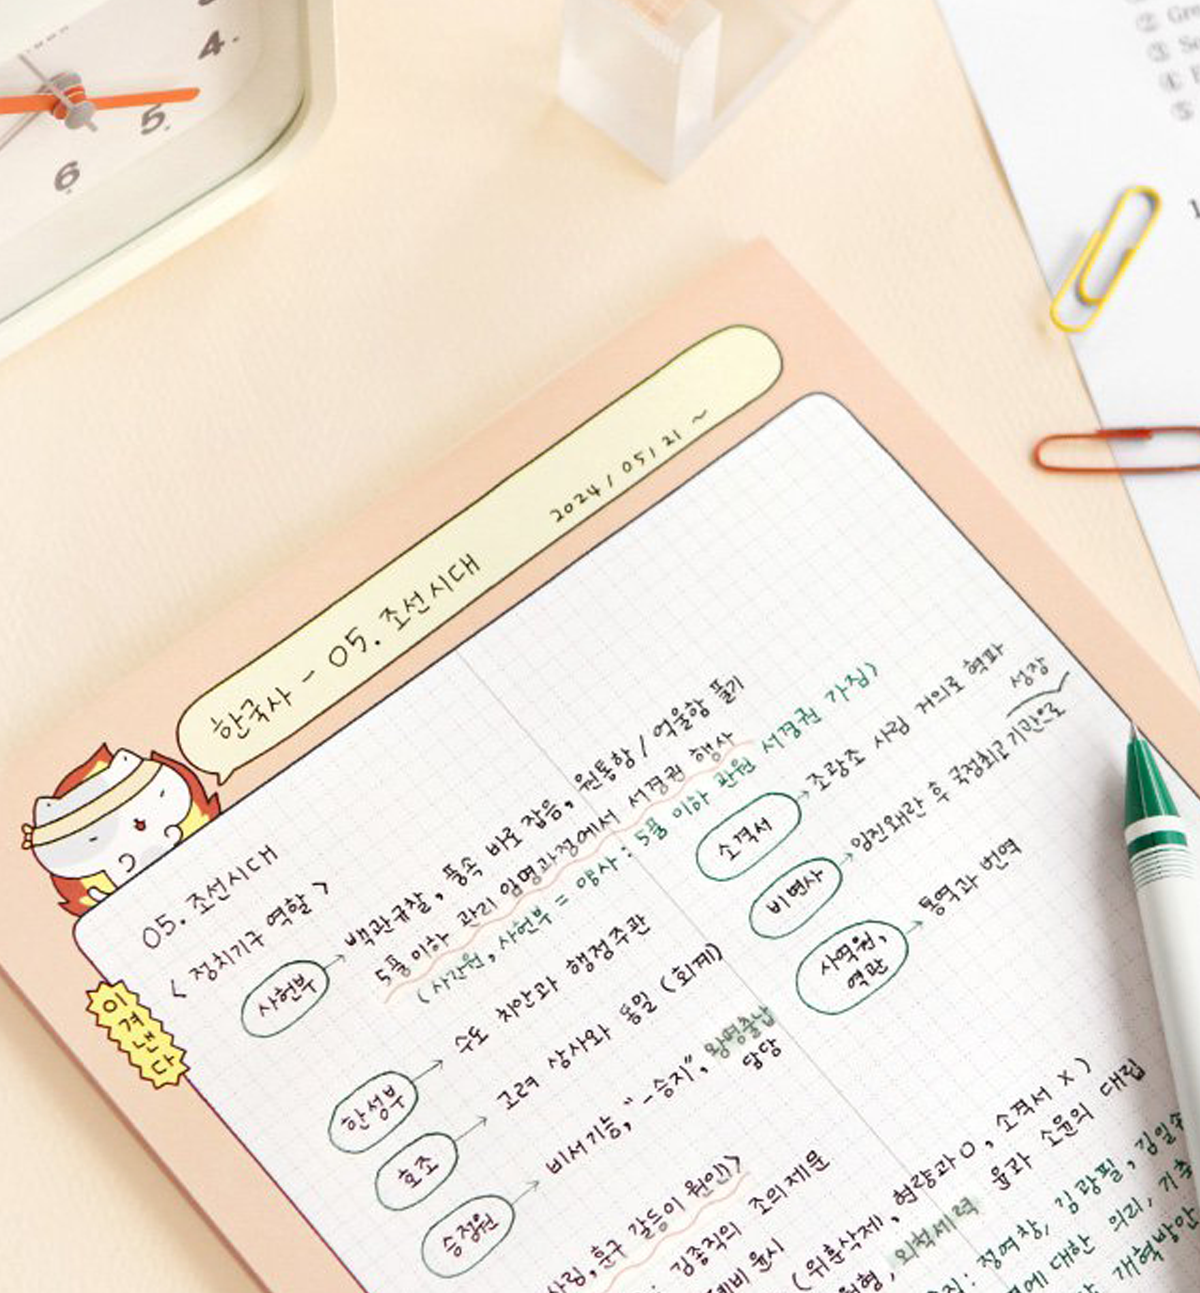 4.
5.
6
② Gre
③
④
⑤
1
한국사 - 05. 조선시대
2024 / 05 / 21 ~
이겨낸다
05. 조선시대
< 정치기구 역할 >
사헌부 → 백관규찰, 풍속 바로 잡음, 원통함 / 억울함 풀기
5품 이하 관리 임명과정에서 서경권 행사
(사간원, 사헌부 = 양사 : 5품 이하 관원 서경권 가짐)
한성부 → 수도 치안과 행정주관
호조 → 고려 삼사와 동일 (회계)
승정원 → 비서기능, "-승지", 왕명출납
담당
소격서 → 조광조 사림 건의로 혁파
비변사 → 임진왜란 후 국정최고기관으로
성장
사역원,
역관 → 통역과 번역
사림, 훈구 갈등이 원인>
: 김종직의 조의제문
폐비 윤시
(위훈삭제, 현량과 O, 소격서 X)
외척세력 윤과 소윤의 대립
: 정여창, 김굉필, 김일손
에 대한 의리,
개혁방안